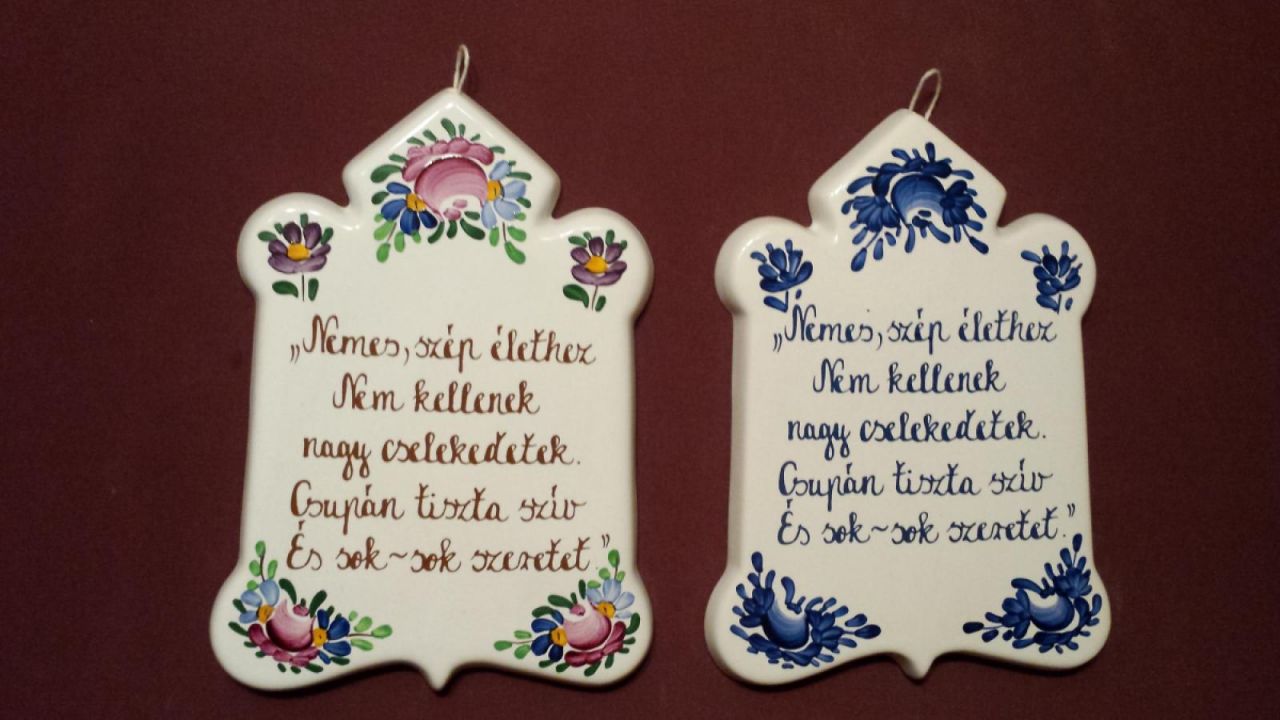 „Nemes, szép élethez
Nem kellenek
nagy cselekedetek.
Csupán tiszta szív
És sok~sok szeretet.”
„Nemes, szép élethez
Nem kellenek
nagy cselekedetek.
Csupán tiszta szív
És sok~sok szeretet.”